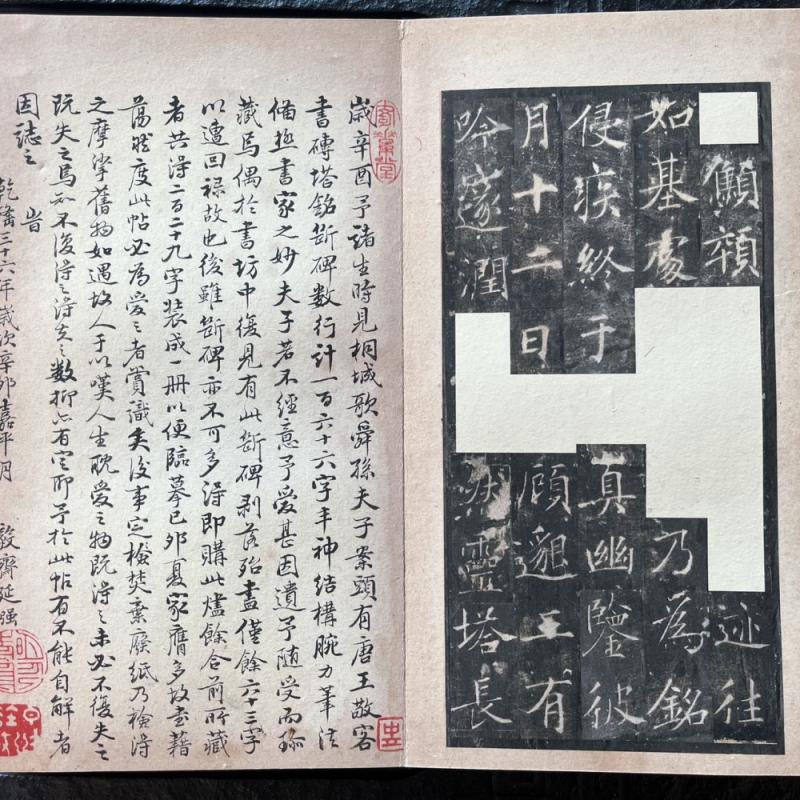 迹往
如基處 乃為銘
侵疾終于 真幽鑒彼
月十二日 顧邈工有
吟邃澗 靈塔長
歲辛酉予諸生時見桐城歌舜孫夫子案頭有唐王敬客
書磚塔銘斷碑數行計一百六十六字丰神結構腕力筆法
備極書家之妙夫子若不經意予愛甚因遺予隨受而珎
藏焉偶於書坊中復見有此斷碑剥落殆盡僅餘六十三字
以遭回祿故也後雖斷碑亦不可多得即購此燼餘合前所藏
者共得二百二十九字裝成一冊以便臨摹己卯夏家膺多故書籍
蕩然度此帖必為愛之者賞識矣後事定檢焚棄廢紙乃檢得
之摩挲舊物如遇故人于以嘆人生耽愛之物既得之未必不復失之
既失之焉知不復得之得失之數抑亦有定耶予於此帖有不能自解者
因誌之 旹
乾隆三十六年歲次辛卯嘉平月 敦齋延強